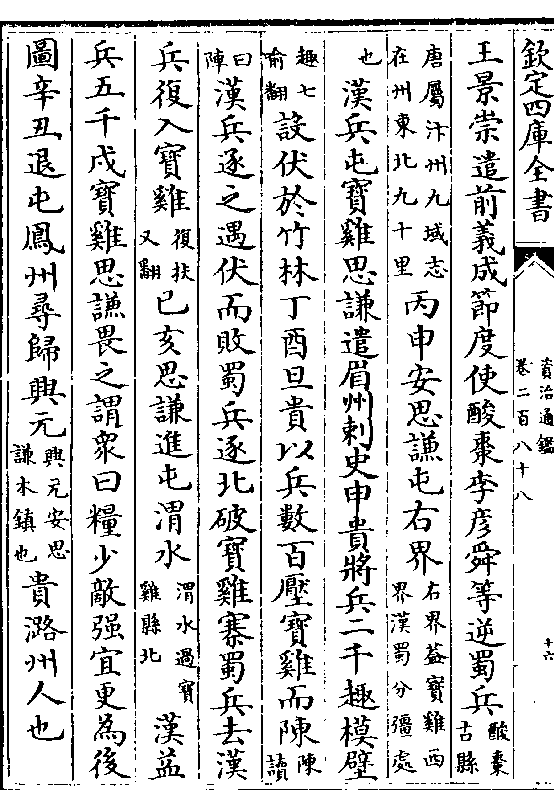 欽定四庫全書
資治通鑑
卷二百八十八
十六
王景崇遣前義成節度使酸棗李彥舜等逆蜀兵酸棗古縣
唐屬汴州九域志在州東北九十里丙申安思謙屯右界右界益寶雞西界漢蜀分彊處
也漢兵屯寶雞思謙遣眉州刺史申貴將兵二千趣模壁
趣七俞翻設伏於竹林丁酉旦貴以兵數百壓寶雞而陳陳讀
曰陣漢兵逐之遇伏而敗蜀兵逐北破寶雞寨蜀兵去漢
兵復入寶雞復扶又翻己亥思謙進屯渭水渭水過寶雞縣北漢益
兵五千戍寶雞思謙畏之謂衆曰糧少敵强宜更為後
圖辛丑退屯鳳州尋歸興元興元安思謙本鎮也貴潞州人也